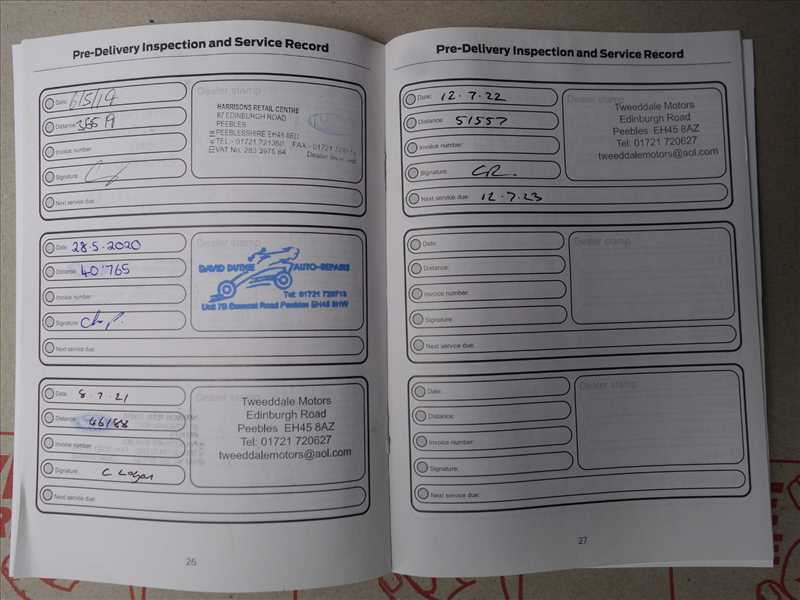 Pre-Delivery Inspection and Service Record
Date: 6/5/19
Distance:
Invoice number:
Signature:
Next service due:
Dealer stamp
HARRISONS RETAIL CENTRE
87 EDINBURGH ROAD
PEEBLES
PEEBLESSHIRE EH45 8ED
TEL:- 01721 721350 FAX:- 01721
VAT No. 283 2975 64
Date: 28.5.2020
Distance: 40'765
Invoice number:
Signature:
Next service due:
Dealer stamp
DAVID AUTO-REPAIRS
Tel: 01721
Unit 7B Road Peebles EH45
Date: 8.7.21
Distance: 46188
Invoice number:
Signature: C Logan
Next service due:
Dealer stamp
Tweeddale Motors
Edinburgh Road
Peebles EH45 8AZ
Tel: 01721 720627
tweeddalemotors@aol.com
26
Pre-Delivery Inspection and Service Record
Date: 12.7.22
Distance: 51557
Invoice number:
Signature:
Next service due: 12.7.23
Dealer stamp
Tweeddale Motors
Edinburgh Road
Peebles EH45 8AZ
Tel: 01721 720627
tweeddalemotors@aol.com
Date:
Distance:
Invoice number:
Signature:
Next service due:
Dealer stamp
Date:
Distance:
Invoice number:
Signature:
Next service due:
Dealer stamp
27